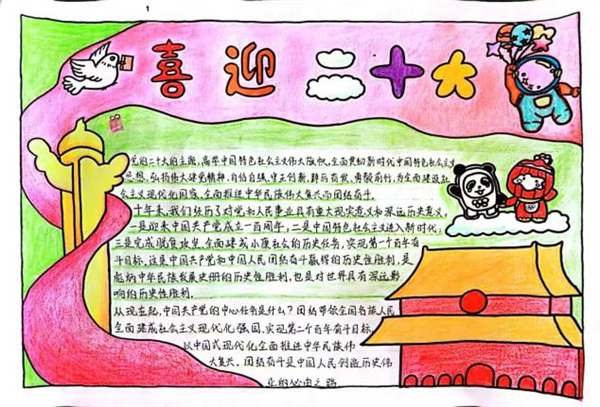 喜迎二十大
党的二十大的主题，高举中国特色社会主义伟大旗帜，全面贯彻新时代中国特色社会主义
思想，弘扬伟大建党精神，自信自强、守正创新，踔厉奋发、勇毅前行，为全面建设社
会主义现代化国家、全面推进中华民族伟大复兴而团结奋斗。
十年来，我们经历了对党和人民事业具有重大现实意义和深远历史意义，
一是迎来中国共产党成立一百周年，二是中国特色社会主义进入新时代；
三是完成脱贫攻坚，全面建成小康社会的历史任务，实现第一个百年奋
斗目标，这是中国共产党和中国人民团结奋斗赢得的历史性胜利，是
彪炳中华民族发展史册的历史性胜利，也是对世界具有深远影
响的历史性胜利。
从现在起，中国共产党的中心任务是什么？团结带领全国各族人民
全面建成社会主义现代化强国，实现第二个百年奋斗目标，
以中国式现代化全面推进中华民族伟
大复兴。团结奋斗是中国人民创造历史伟
业的必由之路